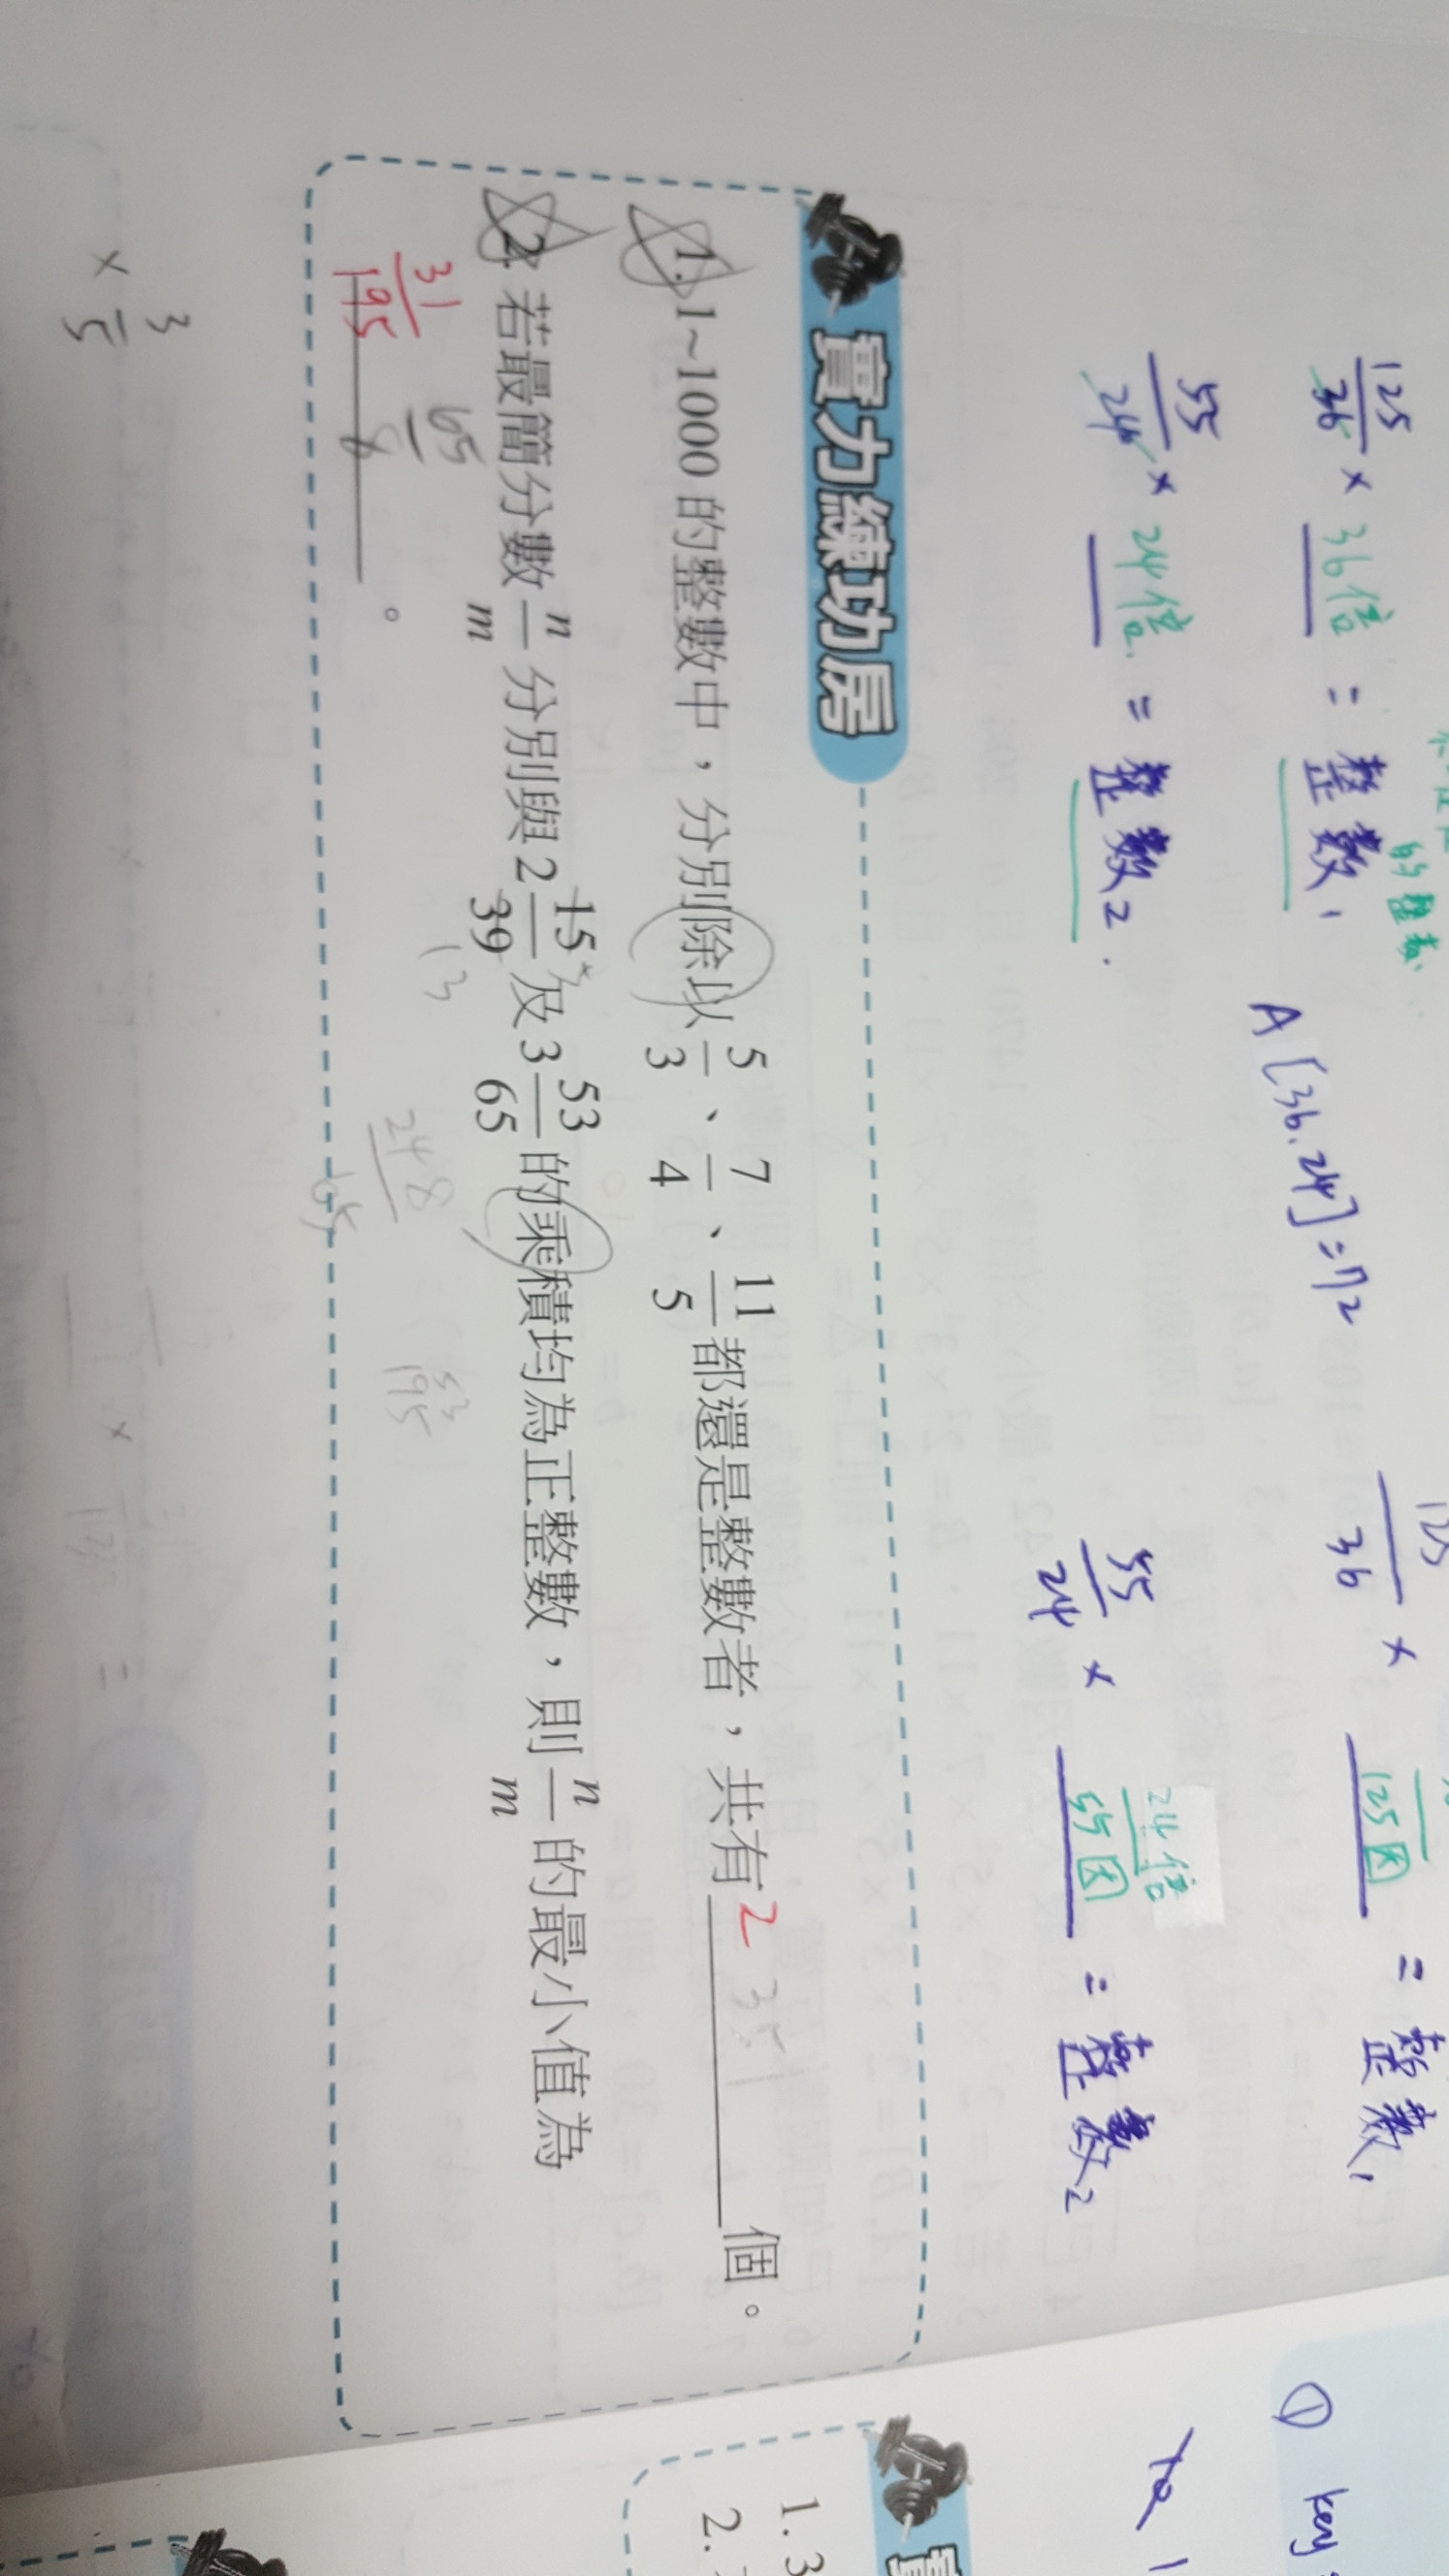 125/36 × 36倍 = 整數1
的整數
55/24 × 24倍 = 整數2.
A [36.24]=72
36 × 125因 = 整數1
55/24 × 24倍/55因 = 整數2
實力練功房
1. 1~1000 的整數中，分別除以 5/3、7/4、11/5 都還是整數者，共有 2 個。
2. 若最簡分數 n/m 分別與 2 15/39 及 3 53/65 的乘積均為正整數，則 n/m 的最小值為
31/195 。
65/8
13
248/65
× 3/5
×
=
① key
1. 3
2.